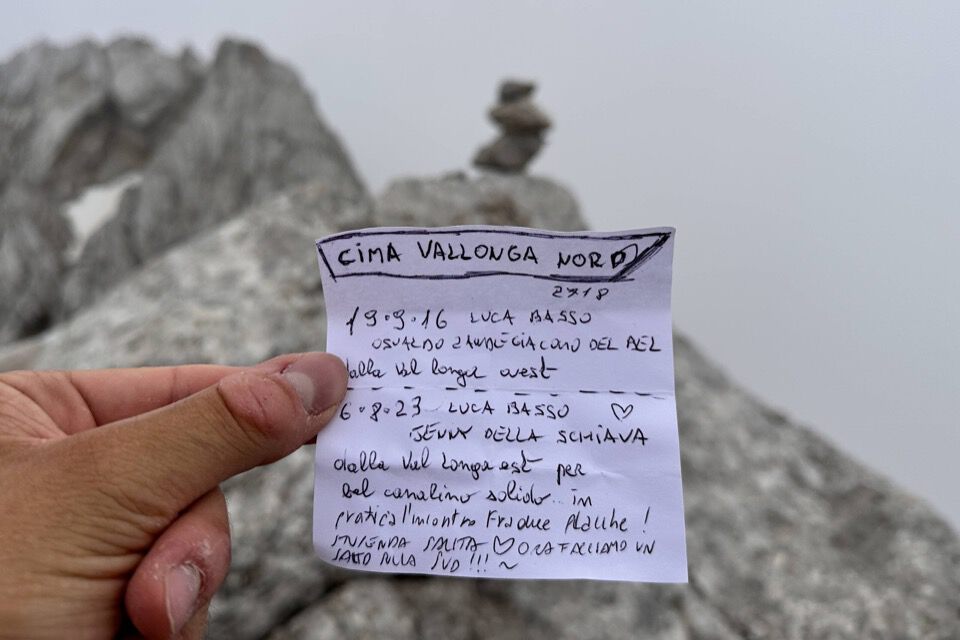 CIMA VALLONGA NORD
2718
19.9.16 LUCA BASSO
OSVALDO ZANDEGIACOMO DEL BEL
dalla Val longa ovest
6.8.23 LUCA BASSO ♡
JENNY DELLA SCHIAVA
dalla Val Longa est per
bel canalino solido... in
pratica l'incontro Fra due Placche!
STUPENDA SALITA ♡ ORA FACCIAMO UN
SALTO SULLA SUD!!! ~